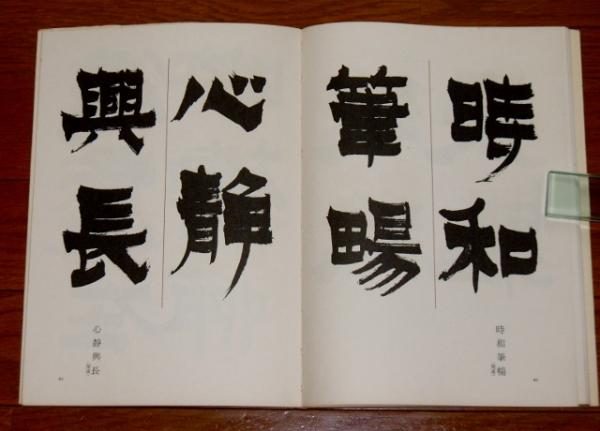 時和
筆暢
心静
興長
時和筆暢
心静興長